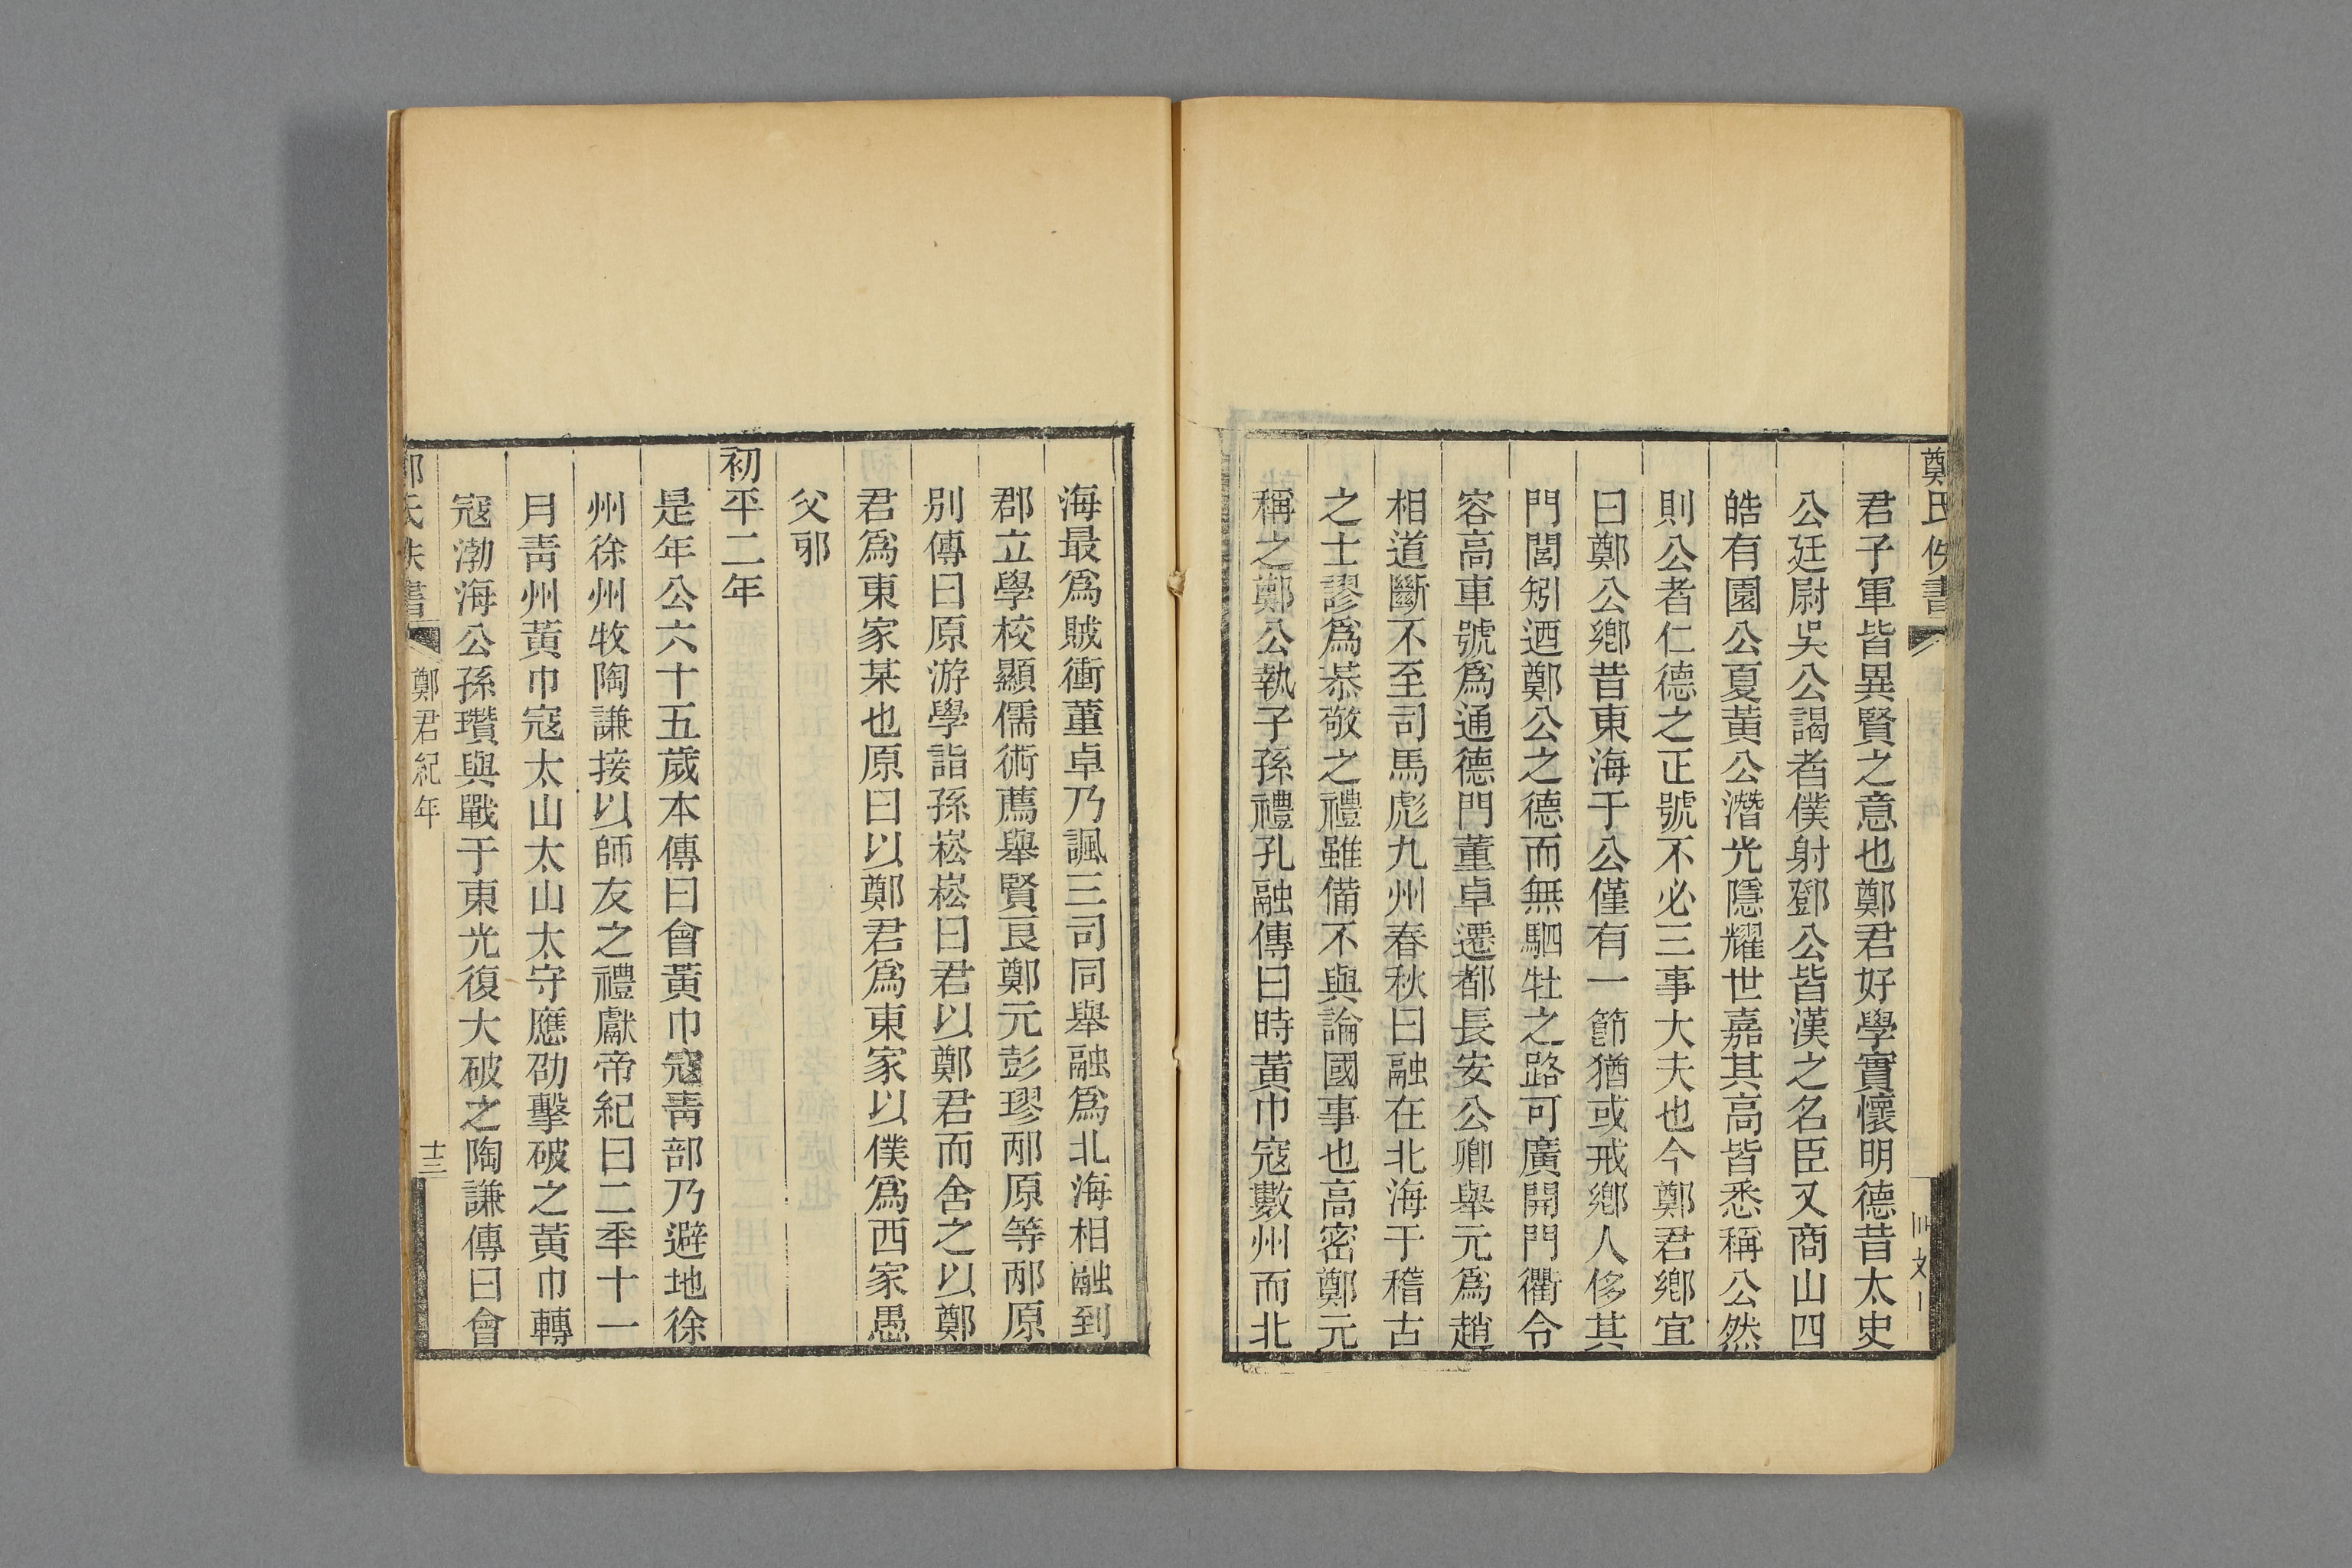 鄭氏佚書
君子軍皆異賢之意也鄭君好學實懷明德昔太史
公廷尉吳公謁者僕射鄧公皆漢之名臣又商山四
皓有園公夏黃公潛光隱耀世嘉其高皆悉稱公然
則公者仁德之正號不必三事大夫也今鄭君鄉宜
曰鄭公鄉昔東海于公僅有一節猶或戒鄉人侈其
門閭矧迺鄭公之德而無駟牡之路可廣開門衢令
容高車號爲通德門董卓遷都長安公卿舉元爲趙
相道斷不至司馬彪九州春秋曰融在北海于稽古
之士謬爲恭敬之禮雖備不與論國事也高密鄭元
稱之鄭公執子孫禮孔融傳曰時黃巾寇數州而北
海最爲賊衝董卓乃諷三司同舉融爲北海相融到
郡立學校顯儒術薦舉賢良鄭元彭璆邴原等邴原
別傳曰原游學詣孫崧崧曰君以鄭君而舍之以鄭
君爲東家某也原曰以鄭君爲東家以僕爲西家愚
父邪
初平二年
是年公六十五歲本傳曰會黃巾寇靑部乃避地徐
州徐州牧陶謙接以師友之禮獻帝紀曰二秊十一
月靑州黃巾寇太山太山太守應劭擊破之黃巾轉
寇渤海公孫瓚與戰于東光復大破之陶謙傳曰會
鄭氏佚書
鄭君紀年
十三